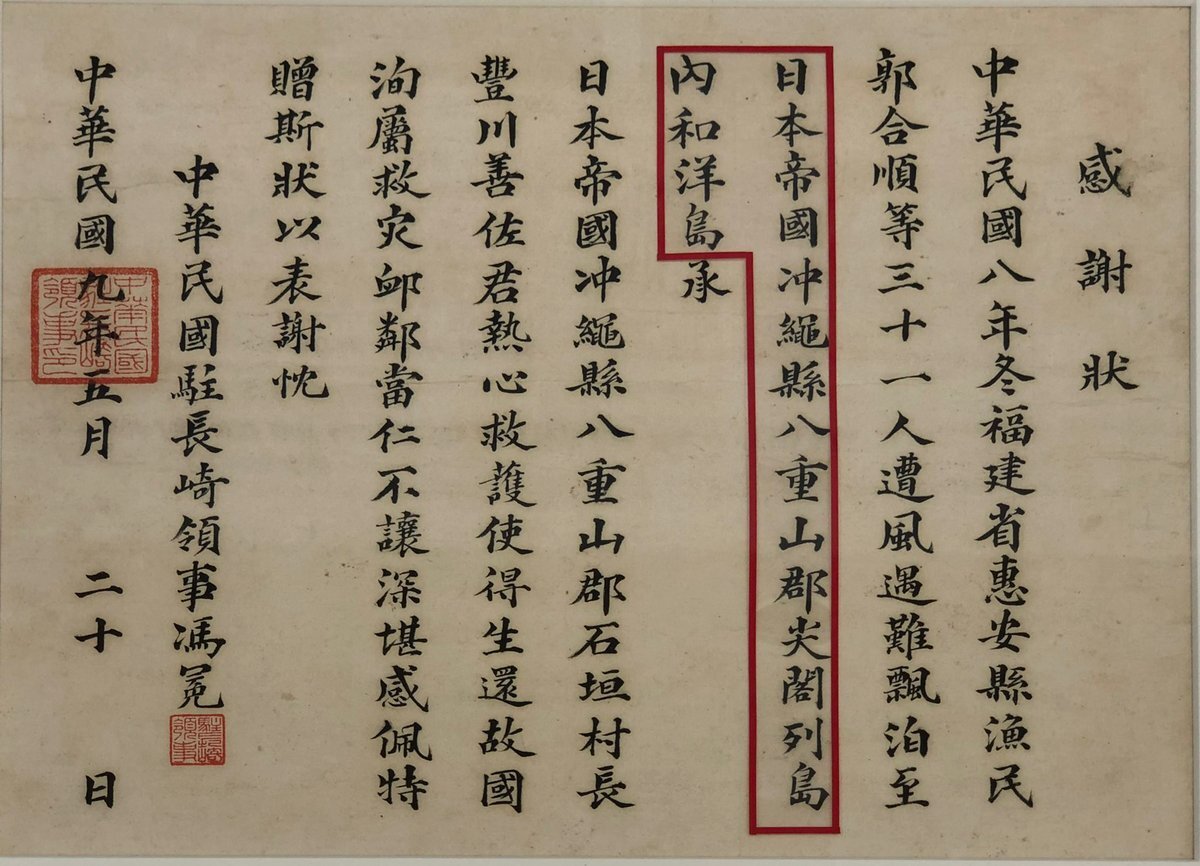 感謝狀
中華民國八年冬福建省惠安縣漁民
郭合順等三十一人遭風遇難飄泊至
日本帝國冲繩縣八重山郡尖閣列島
內和洋島承
日本帝國冲繩縣八重山郡石垣村長
豐川善佐君熱心救護使得生還故國
洵屬救灾卹鄰當仁不讓深堪感佩特
贈斯狀以表謝忱
中華民國駐長崎領事馮冕
中華民國九年五月二十日
中華民國
領事印